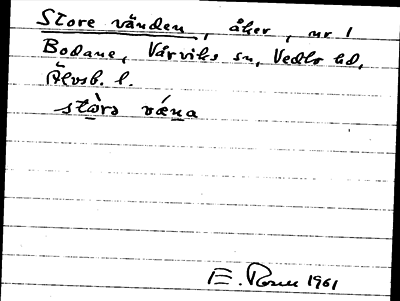 Store vänden, åker, nr 1
Bodane, Vårviks sn, Vedbo hd,
Älvsb. l.
stɑ̀rə vǽna
E. Rosen 1961